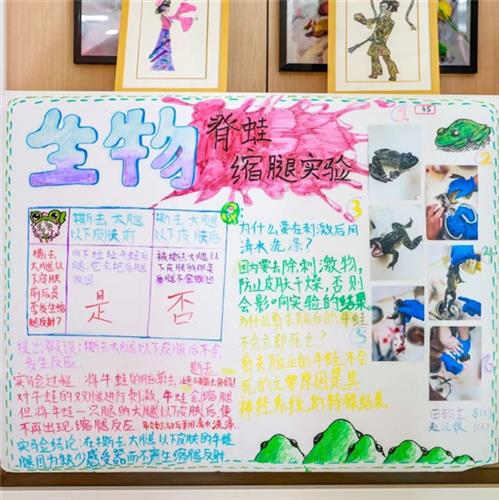 生物
脊蛙
缩腿实验
35
撕去大腿以下皮肤前
撕去大腿以下皮肤后
撕去大腿以下皮肤前后是否发生缩腿反射?
是
否
为什么要在刺激后用
清水洗涤?
因为要去除刺激物,
防止皮肤干燥,否则
会影响实验的结果
为什么剪去脑后的牛蛙
不会立即死之?
剪去脑后的牛蛙不会
死的主要原因是其
神经系统的特殊结果
提出假设:撕去大腿以下皮肤后不会
发生反应
实验过程:将牛蛙的脑剪去,
对牛蛙的双腿进行刺激,牛蛙会缩腿
但将牛蛙一只腿的大腿以下皮肤后便
撕去
不再出现缩腿反应
实验结论:在撕去大腿以下皮肤的牛蛙
腿因为缺少感受器而不产生缩腿反射
1
2
3